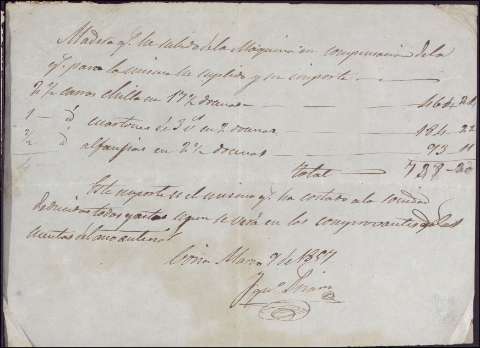 Madera qe. ha salido de la Maquina en compensacion de la
qe. para la misma ha suplido y su importe
2½ carros chilla en 17½ docenas 464-21
1 id cuartones de 3 en 2 docenas 184-22
½ id alfangias en 2½ docenas 73-11
total 728-20
Este importe es el mismo qe. ha costado a la
deducidos todos gastos segun se verá en los comprovantes de las
cuentas del mes anterior
Marzo 9 de 1857